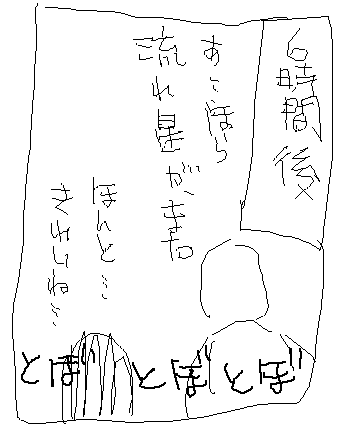 6時間後
あ…ほら
流れ星が、
ほんと…
きれいね…
とぼ とぼ とぼ